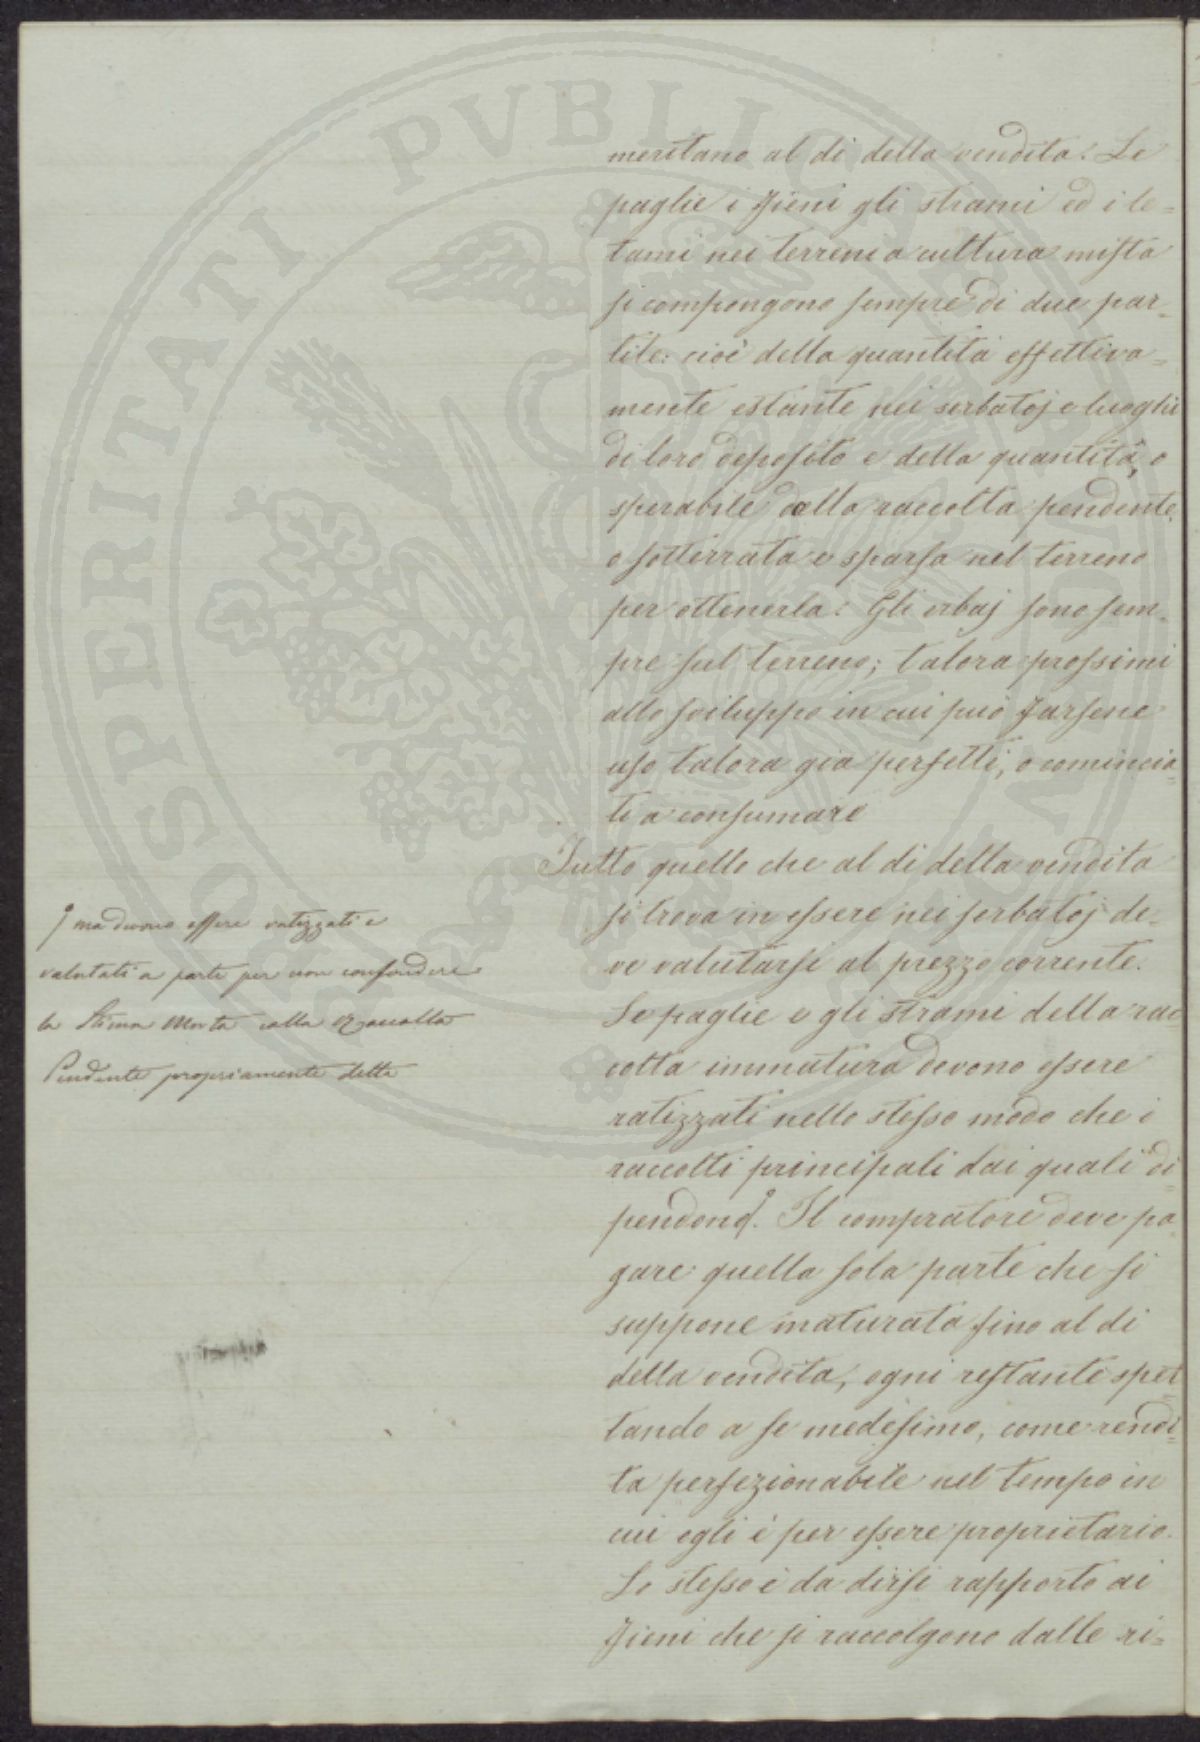 meritano al dì della vendita. Le
paglie i fieni gli strami ed i le=
tami nei terreni a cultura mista
si compongono sempre di due par=
tite: cioè della quantità effettiva=
mente estante nei serbatoj e luoghi
di loro deposito e della quantità, o
sperabile dalla raccolta pendente
o sotterrata e sparsa nel terreno
per ottenerla. Gli erbaj sono sem=
pre sul terreno; talora prossimi
allo sviluppo in cui può farsene
uso talora già perfetti, o comincia=
ti a consumare
Tutto quello che al dì della vendita
si trova in essere nei serbatoj de=
ve valutarsi al prezzo corrente.
Le paglie e gli strami della rac=
colta immatura devono essere
ratizzati nello stesso modo che i
raccolti principali dai quali di=
pendono. Il compratore deve pa=
gare quella sola parte che si
suppone maturata fino al dì
della vendita, ogni restante spet=
tando a se medesimo, come rendi=
ta perfezionabile nel tempo in
cui egli è per essere proprietario.
Lo stesso è da dirsi rapporto ai
fieni che si raccolgono dalle ri=
ma devono essere ratizzati e
valutati a parte per non confondere
la Stima Morta colla Raccolta
Pendente propriamente detta
PROSPERITATI PVBLICAE